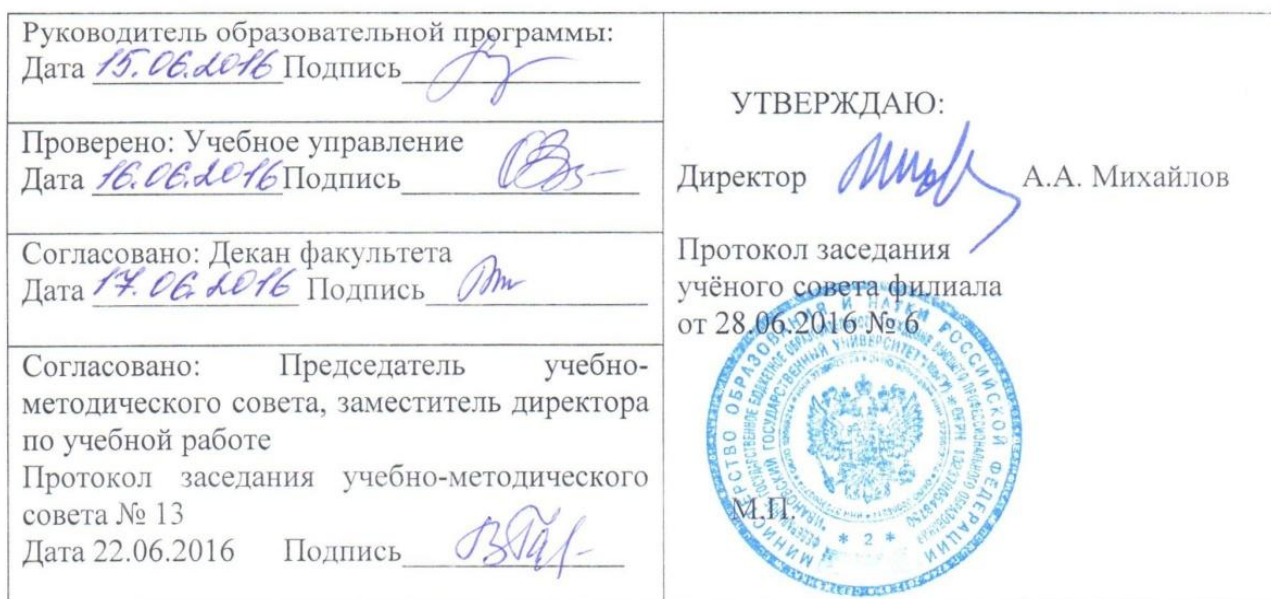 Руководитель образовательной программы:
Дата 15.06.2016 Подпись
Проверено: Учебное управление
Дата 16.06.2016 Подпись
Согласовано: Декан факультета
Дата 17.06.2016 Подпись
Согласовано: Председатель учебно-
методического совета, заместитель директора
по учебной работе
Протокол заседания учебно-методического
совета № 13
Дата 22.06.2016 Подпись
УТВЕРЖДАЮ:
Директор А.А. Михайлов
Протокол заседания
учёного совета филиала
от 28.06.2016 № 6
М.П.
МИНИСТЕРСТВО ОБРАЗОВАНИЯ И НАУКИ РОССИЙСКОЙ ФЕДЕРАЦИИ
* 2 *